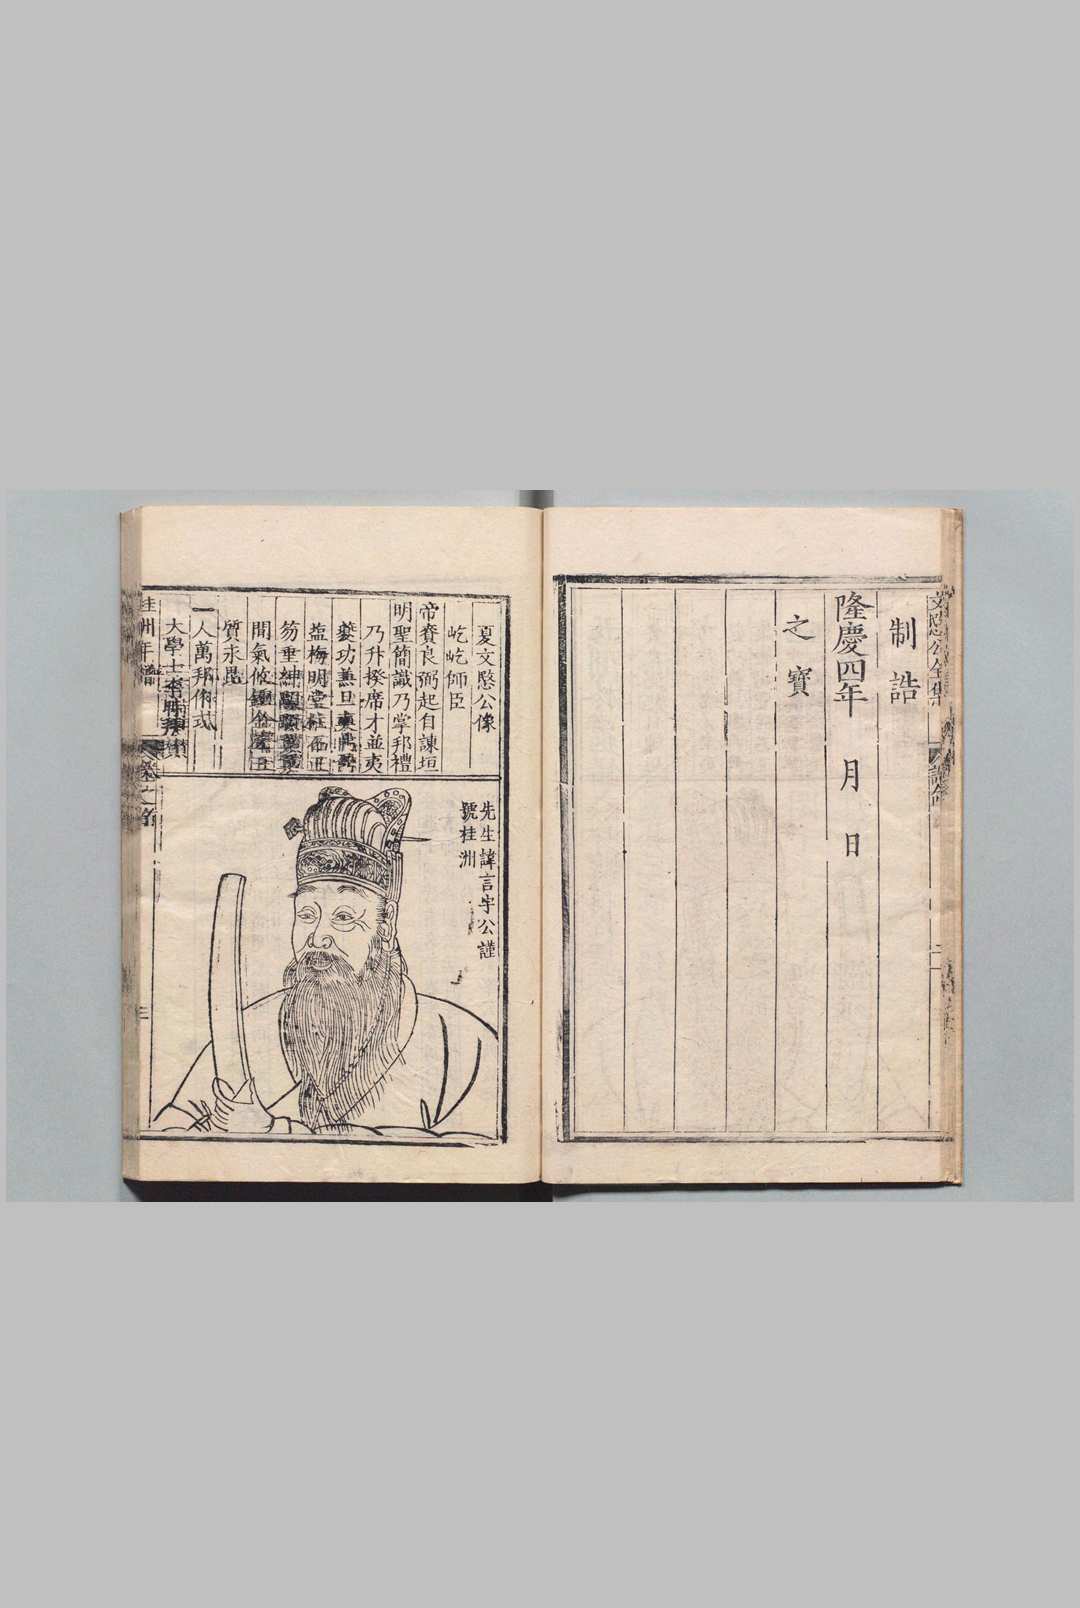 制誥
隆慶四年 月 日
之寶
夏文愍公像
屹屹師臣
帝賚良弼起自諫垣
明聖簡識乃掌邦禮
乃升揆席才並夷
夔功兼旦奭鼎鼐
鹽梅明堂柱石正
笏垂紳
間氣攸鍾
質永毘
一人萬邦作式
大學士李
先生諱言字公謹
號桂洲
桂州年譜
三